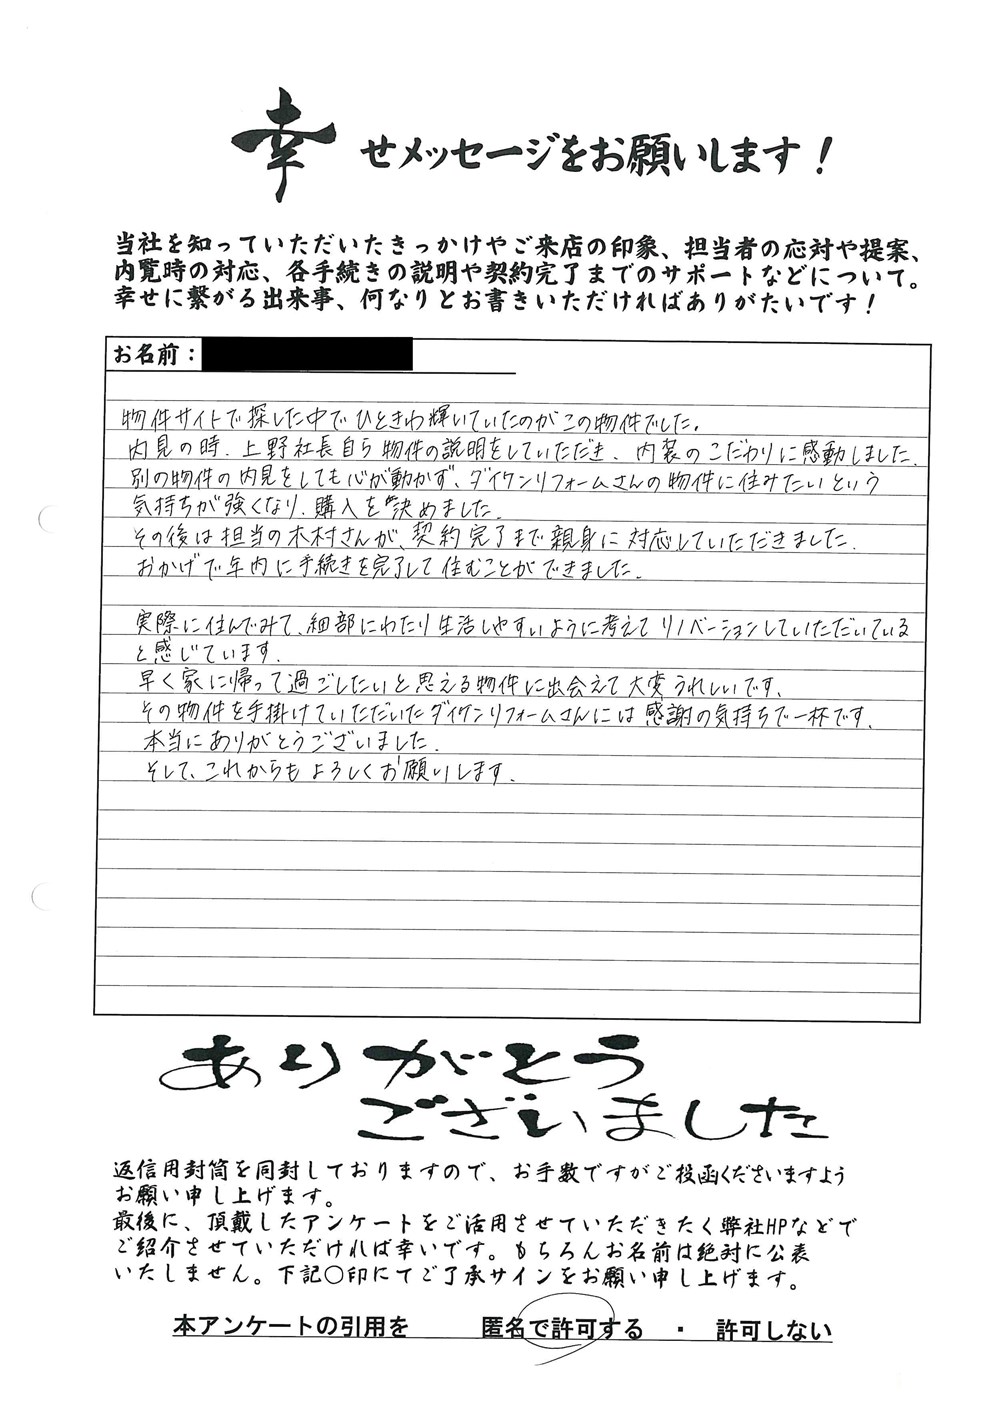 幸せメッセージをお願いします！
当社を知っていただいたきっかけやご来店の印象、担当者の応対や提案、
内覧時の対応、各手続きの説明や契約完了までのサポートなどについて。
幸せに繋がる出来事、何なりとお書きいただければありがたいです！
お名前：
物件サイトで探した中でひときわ輝いていたのがこの物件でした。
内見の時、上野社長自ら物件の説明をしていただき、内装のこだわりに感動しました。
別の物件の内見をしても心が動かず、ダイケンリフォームさんの物件に住みたいという
気持ちが強くなり、購入を決めました。
その後は担当の木村さんが、契約完了まで親身に対応していただきました。
おかげで年内に手続きを完了して住むことができました。
実際に住んでみて、細部にわたり生活しやすいように考えてリノベーションしていただいている
と感じています。
早く家に帰って過ごしたいと思える物件に出会えて大変うれしいです。
その物件を手掛けていただいたダイケンリフォームさんには感謝の気持ちで一杯です。
本当にありがとうございました。
そして、これからもよろしくお願いします。
ありがとう
ございました
返信用封筒を同封しておりますので、お手数ですがご投函くださいますよう
お願い申し上げます。
最後に、頂戴したアンケートをご活用させていただきたく弊社HPなどで
ご紹介させていただければ幸いです。もちろんお名前は絶対に公表
いたしません。下記○印にてご了承サインをお願い申し上げます。
本アンケートの引用を　匿名で許可する　・　許可しない